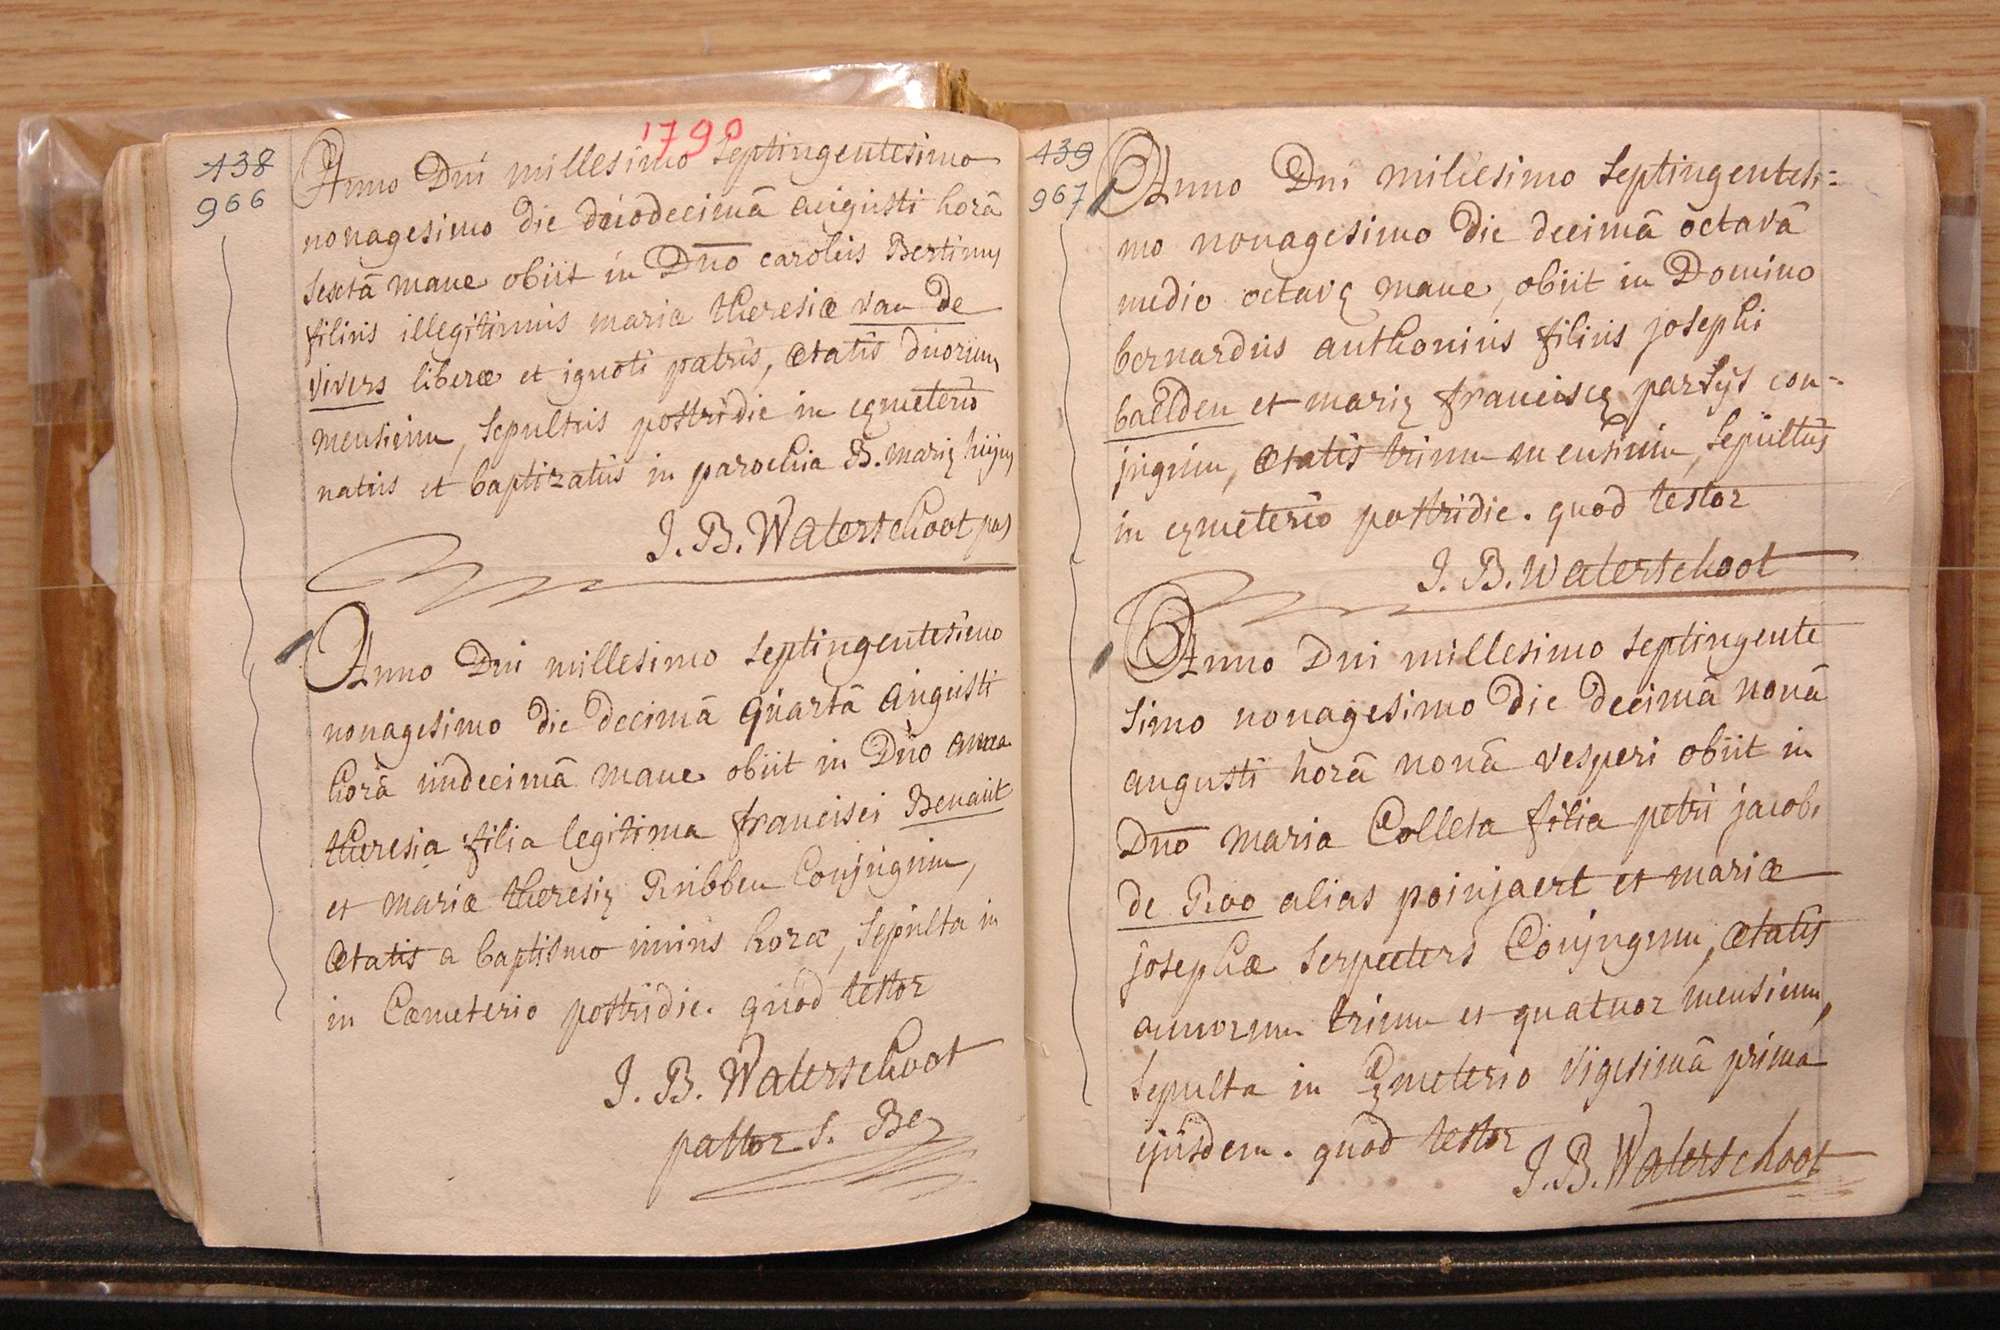 1790
438
966
Anno Dni millesimo septingentesimo
nonagesimo die duodecimâ augusti horâ
sextâ mane obiit in Dno carolus Bertinus
filius illegitimus mariæ theresiæ van de
vivers liberæ et ignoti patris, ætatis duorum
mensium, sepultus postridie in cęmeterio
natus et baptizatus in parochia B. marię hujus
J. B. Waterschoot pas
Anno Dni millesimo septingentesimo
nonagesimo die decimâ quartâ augusti
horâ undecimâ mane obiit in Dno anna
theresia filia legitima francisci Benaut
et mariæ theresię Rubben Conjugum,
ætatis a baptismo unius horæ, sepulta in
in Cæmeterio postridie. quod testor
J. B. Waterschoot
pastor S.
439
967
Anno Dni millesimo septingentesi=
mo nonagesimo die decimâ octavâ
medio octavę mane, obiit in Domino
bernardus anthonius filius josephi
baelden et marię franciscę parsijs con=
jugum, ætatis trium mensium, sepultus
in cęmeterio postridie. quod testor
J. B. Waterschoot
Anno Dni millesimo septingente
simo nonagesimo die decimâ nonâ
augusti horâ nonâ vesperi obiit in
Dno maria Colleta filia petri jacobi
de Roo alias poinjaert et mariæ
josephæ serpeeters Conjugum, ætatis
annorum trium et quatuor mensium,
sepulta in Cęmeterio vigesimâ prima
ejusdem. quod testor
J. B. Waterschoot